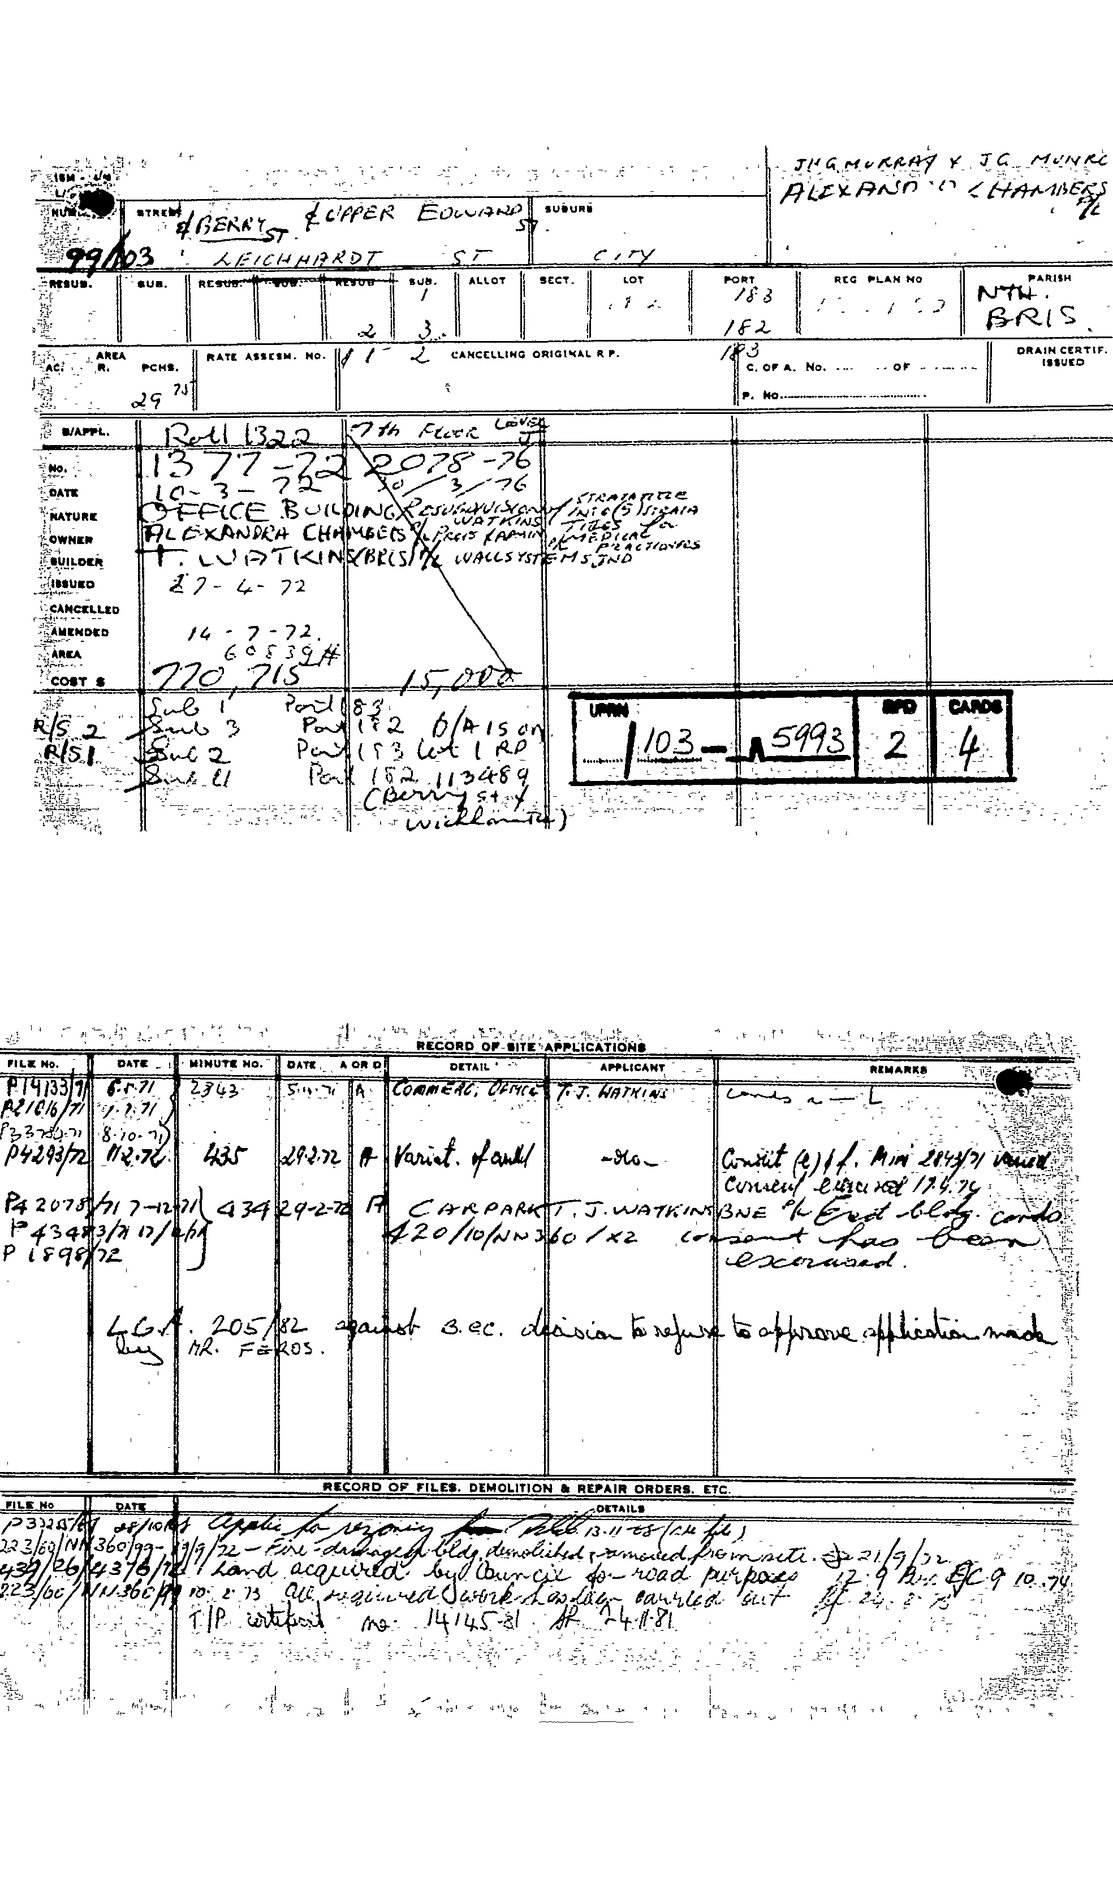 JHG MURRAY & J.G. MUNRO
ALEXAND CHAMBERS
P/L
STREET & BERRY ST. & UPPER EDWARD ST. SUBURB
99/103 LEICHHARDT ST CITY
RESUB. SUB. RESUB. SUB. RESUB SUB. ALLOT SECT. LOT PORT REG PLAN NO PARISH
1 183 NTH.
2 3. 182 BRIS.
AREA RATE ASSESM. No. 1 2 CANCELLING ORIGINAL R P. 183 DRAIN CERTIF. ISSUED
AC. R. PCHS. C. OF A. No. OF
29 75 P. No.
B/APPL. Roll 1322 7th FLOOR LEVEL
No. 1377-72 2078-76
DATE 10-3-72 30/3/76
NATURE OFFICE BUILDING RESUBDIVISION INTO (5) STRATA TITLES for MEDICAL PRACTIONERS
STRATA TITLE
OWNER ALEXANDRA CHAMBERS P/L WATKINS
BUILDER T. WATKINS (BRIS) P/L WALLSYSTEMS IND
ISSUED 27-4-72
CANCELLED
AMENDED 14-7-72.
AREA 60839
COST $ 770,715 15,000
Sub 1 Port 183
R/S 2 Sub 3 Port 182 D/A 15 on
R/S 1 Sub 2 Port 183 Lot 1 RP
Sub 4 Port 182 113489
(Berry St &
Wickham Tce)
UPRN RPD CARDS
/103 - 5993 2 4
RECORD OF SITE APPLICATIONS
FILE No. DATE MINUTE NO. DATE A OR D DETAIL APPLICANT REMARKS
P14133/71 6.5.71 2843 5.11.71 A COMMERC. OFFICE T.J. WATKINS
P21616/71 1.7.71
P33784.71 8.10.71
P4293/72 11.2.72 435 29.2.72 A Variat. of auth -do- Consent (e) f. Min 2843/71 varied
Consent exercised 17.4.74
P42078/71 7-12-71 434 29-2-72 A CARPARK T.J. WATKINS BNE P/L Erect bldg. cards
P4348 3/71 17/ 420/10/NN360/X2 consent has been
P1898/72 exercised.
L.G.A. 205/82 against B.C.C. decision to refuse to approve application made
by MR. FEROS.
RECORD OF FILES, DEMOLITION & REPAIR ORDERS, ETC.
FILE No DATE DETAILS
28/10/ Applic for rezoning 13.11.68
223/60/NN360/99- 19/9/72 - Fire-damaged bldg demolished & removed from site. 21/9/72
439/26/4376/72 Land acquired by Council for road purposes 9 10.74
223/60/NN360/99 10.2.73 All required work has been carried out
T/P certificate no. 14145-81 24.11.81